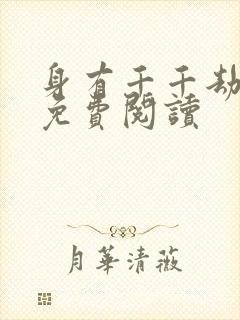 身有千千劫
免費閱讀
月華清薇